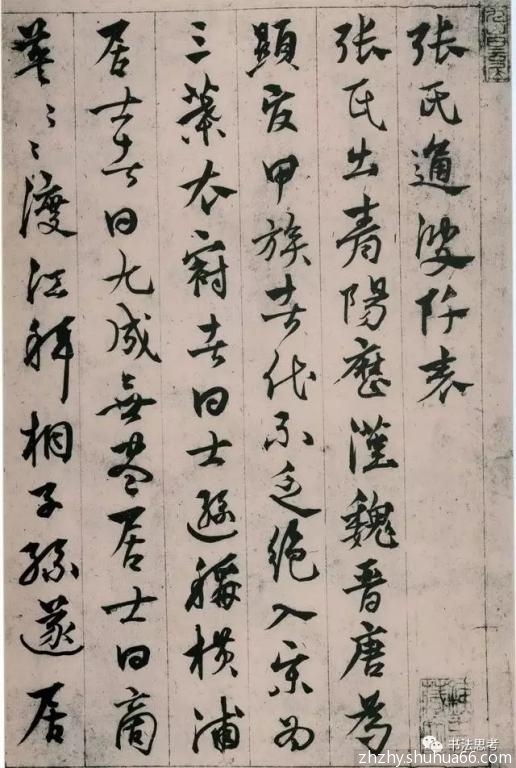 張氏通波阡表
張氏出青陽歷漢魏晉唐為
顯官甲族者代不乏絕入宋為
三葉衣冠者曰士遜稱橫浦
居士者曰九成無盡居士曰商
英〻〻渡江拜相子孫遂居
书法思考
zhzhy.shuhua66.com